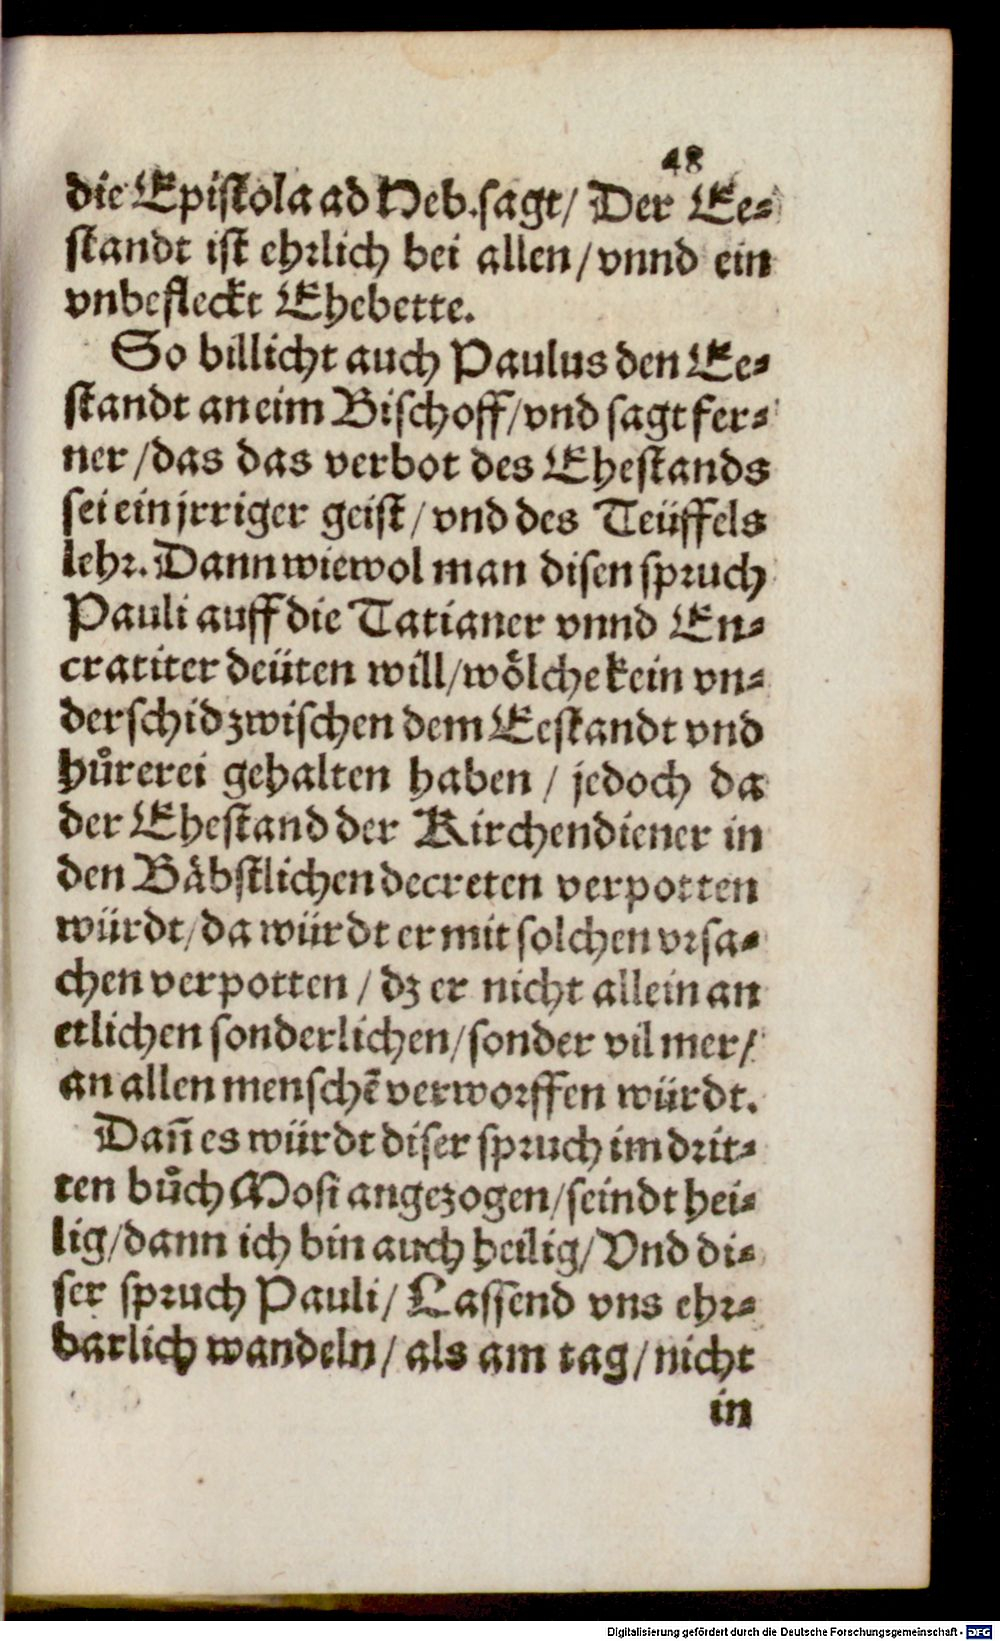 48
die Epistola ad Heb. sagt/ Der Ee⸗
standt ist ehrlich bei allen/ vnnd ein
vnbefleckt Ehebette.
So billicht auch Paulus den Ee⸗
standt an eim Bischoff/ vnd sagt fer⸗
ner/ das das verbot des Ehestands
sei ein jrriger geist/ vnd des Teüffels
lehr. Dann wiewol man disen spruch
Pauli auff die Tatianer vnnd En⸗
cratiter deüten will/ wölche kein vn⸗
derschid zwischen dem Eestandt vnd
hůrerei gehalten haben/ jedoch da
der Ehestand der Kirchendiener in
den Bäbstlichen decreten verpotten
würdt/ da würdt er mit solchen vrsa⸗
chen verpotten/ dz er nicht allein an
etlichen sonderlichen/ sonder vil mer/
an allen menschē verworffen würdt.
Dañ es würdt diser spruch im drit⸗
ten bůch Mosi angezogen/ seindt hei⸗
lig/ dann ich bin auch heilig/ Vnd di⸗
ser spruch Pauli/ Lassend vns ehr⸗
barlich wandeln/ als am tag/ nicht
in
Digitalisierung gefördert durch die Deutsche Forschungsgemeinschaft - DFG